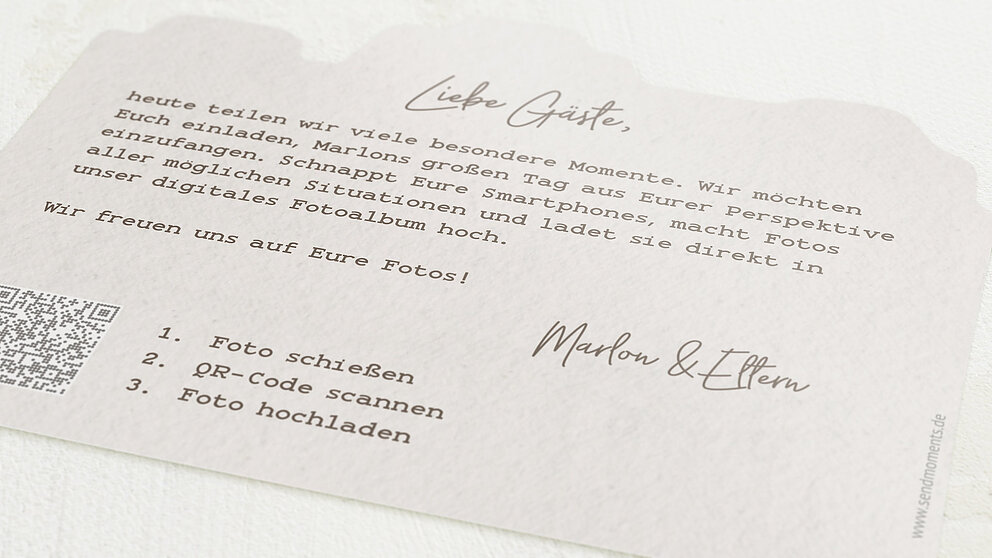 Liebe Gäste,
heute teilen wir viele besondere Momente. Wir möchten
Euch einladen, Marlons großen Tag aus Eurer Perspektive
einzufangen. Schnappt Eure Smartphones, macht Fotos
aller möglichen Situationen und ladet sie direkt in
unser digitales Fotoalbum hoch.
Wir freuen uns auf Eure Fotos!
1. Foto schießen
2. QR-Code scannen
3. Foto hochladen
Marlon & Eltern
www.sendmoments.de